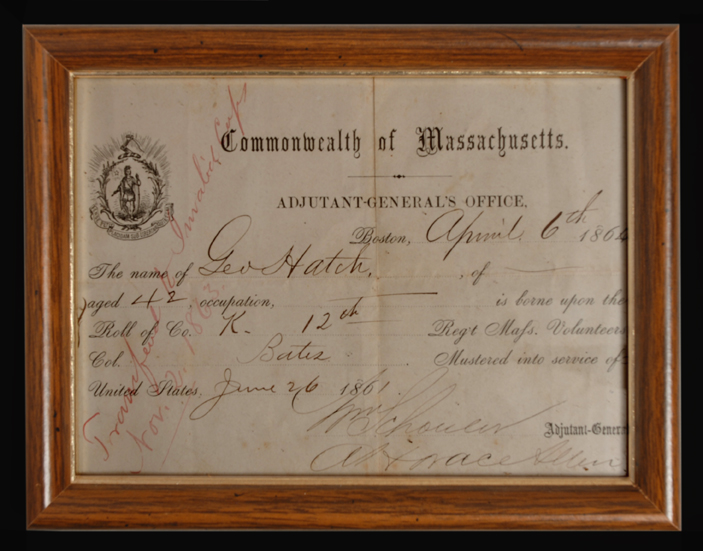 Commonwealth of Massachusetts.
ADJUTANT-GENERAL'S OFFICE,
Boston, April 6th 1864
The name of Geo Hatch, , of
aged 42, occupation, is borne upon the
Roll of Co. K. 12th Reg't Maſs. Volunteers
Col. Bates Mustered into service of
United States, June 26 1861
Wm Schouler Adjutant-Gener
Horace
Transferred to Invalid Corps
Nov. 1863